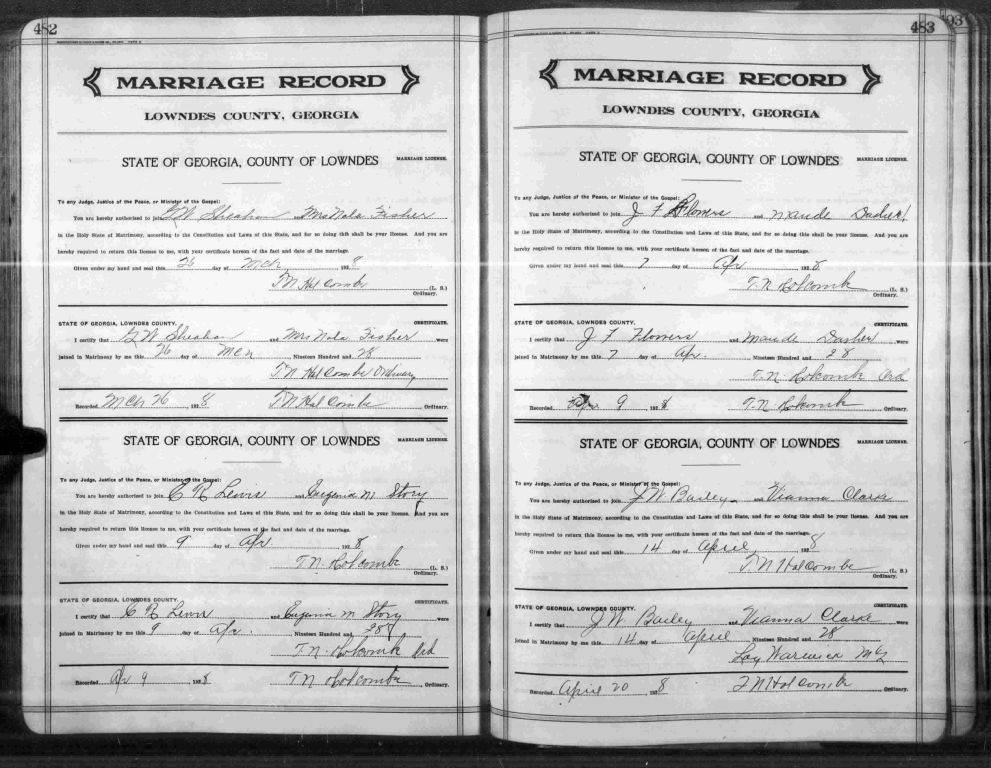 482
MARRIAGE RECORD
LOWNDES COUNTY, GEORGIA
STATE OF GEORGIA, COUNTY OF LOWNDES MARRIAGE LICENSE.
To any Judge, Justice of the Peace, or Minister of the Gospel:
You are hereby authorized to join G W Sheahan and Mrs Nola Fisher
in the Holy State of Matrimony, according to the Constitution and Laws of this State, and for so doing this shall be your license. And you are
hereby required to return this license to me, with your certificate hereon of the fact and date of the marriage.
Given under my hand and seal this 26 day of Mch 1928
T N Holcombe (L. S.)
Ordinary.
STATE OF GEORGIA, LOWNDES COUNTY. CERTIFICATE.
I certify that G W Sheahan and Mrs Nola Fisher were
joined in Matrimony by me this 26 day of Mch Nineteen Hundred and 28
T N Holcombe Ordinary
Recorded Mch 26 1928 T N Holcombe Ordinary.
STATE OF GEORGIA, COUNTY OF LOWNDES MARRIAGE LICENSE.
To any Judge, Justice of the Peace, or Minister of the Gospel:
You are hereby authorized to join C R Lewis and Eugenia M Story
in the Holy State of Matrimony, according to the Constitution and Laws of this State, and for so doing this shall be your license. And you are
hereby required to return this license to me, with your certificate hereon of the fact and date of the marriage.
Given under my hand and seal this 9 day of Apr. 1928
T. N. Holcombe (L. S.)
Ordinary.
STATE OF GEORGIA, LOWNDES COUNTY. CERTIFICATE.
I certify that C R Lewis and Eugenia M Story were
joined in Matrimony by me this 9 day of Apr. Nineteen Hundred and 28
T. N. Holcombe Ord
Recorded Apr 9 1928 T. N. Holcombe Ordinary.
483
93
MARRIAGE RECORD
LOWNDES COUNTY, GEORGIA
STATE OF GEORGIA, COUNTY OF LOWNDES MARRIAGE LICENSE.
To any Judge, Justice of the Peace, or Minister of the Gospel:
You are hereby authorized to join J F Flowers and Maude Dasher
in the Holy State of Matrimony, according to the Constitution and Laws of this State, and for so doing this shall be your license. And you are
hereby required to return this license to me, with your certificate hereon of the fact and date of the marriage.
Given under my hand and seal this 7 day of Apr 1928
T. N. Holcombe (L. S.)
Ordinary.
STATE OF GEORGIA, LOWNDES COUNTY. CERTIFICATE.
I certify that J F Flowers and Maude Dasher were
joined in Matrimony by me this 7 day of Apr. Nineteen Hundred and 28
T. N. Holcombe Ord
Recorded Apr 9 1928 T. N. Holcombe Ordinary.
STATE OF GEORGIA, COUNTY OF LOWNDES MARRIAGE LICENSE.
To any Judge, Justice of the Peace, or Minister of the Gospel:
You are hereby authorized to join J W Bailey and Vianna Clark
in the Holy State of Matrimony, according to the Constitution and Laws of this State, and for so doing this shall be your license. And you are
hereby required to return this license to me, with your certificate hereon of the fact and date of the marriage.
Given under my hand and seal this 14 day of April 1928
T N Holcombe (L. S.)
Ordinary.
STATE OF GEORGIA, LOWNDES COUNTY. CERTIFICATE.
I certify that J W Bailey and Vianna Clark were
joined in Matrimony by me this 14 day of April Nineteen Hundred and 28
Loy Warwick M G
Recorded April 20 1928 T N Holcombe Ordinary.